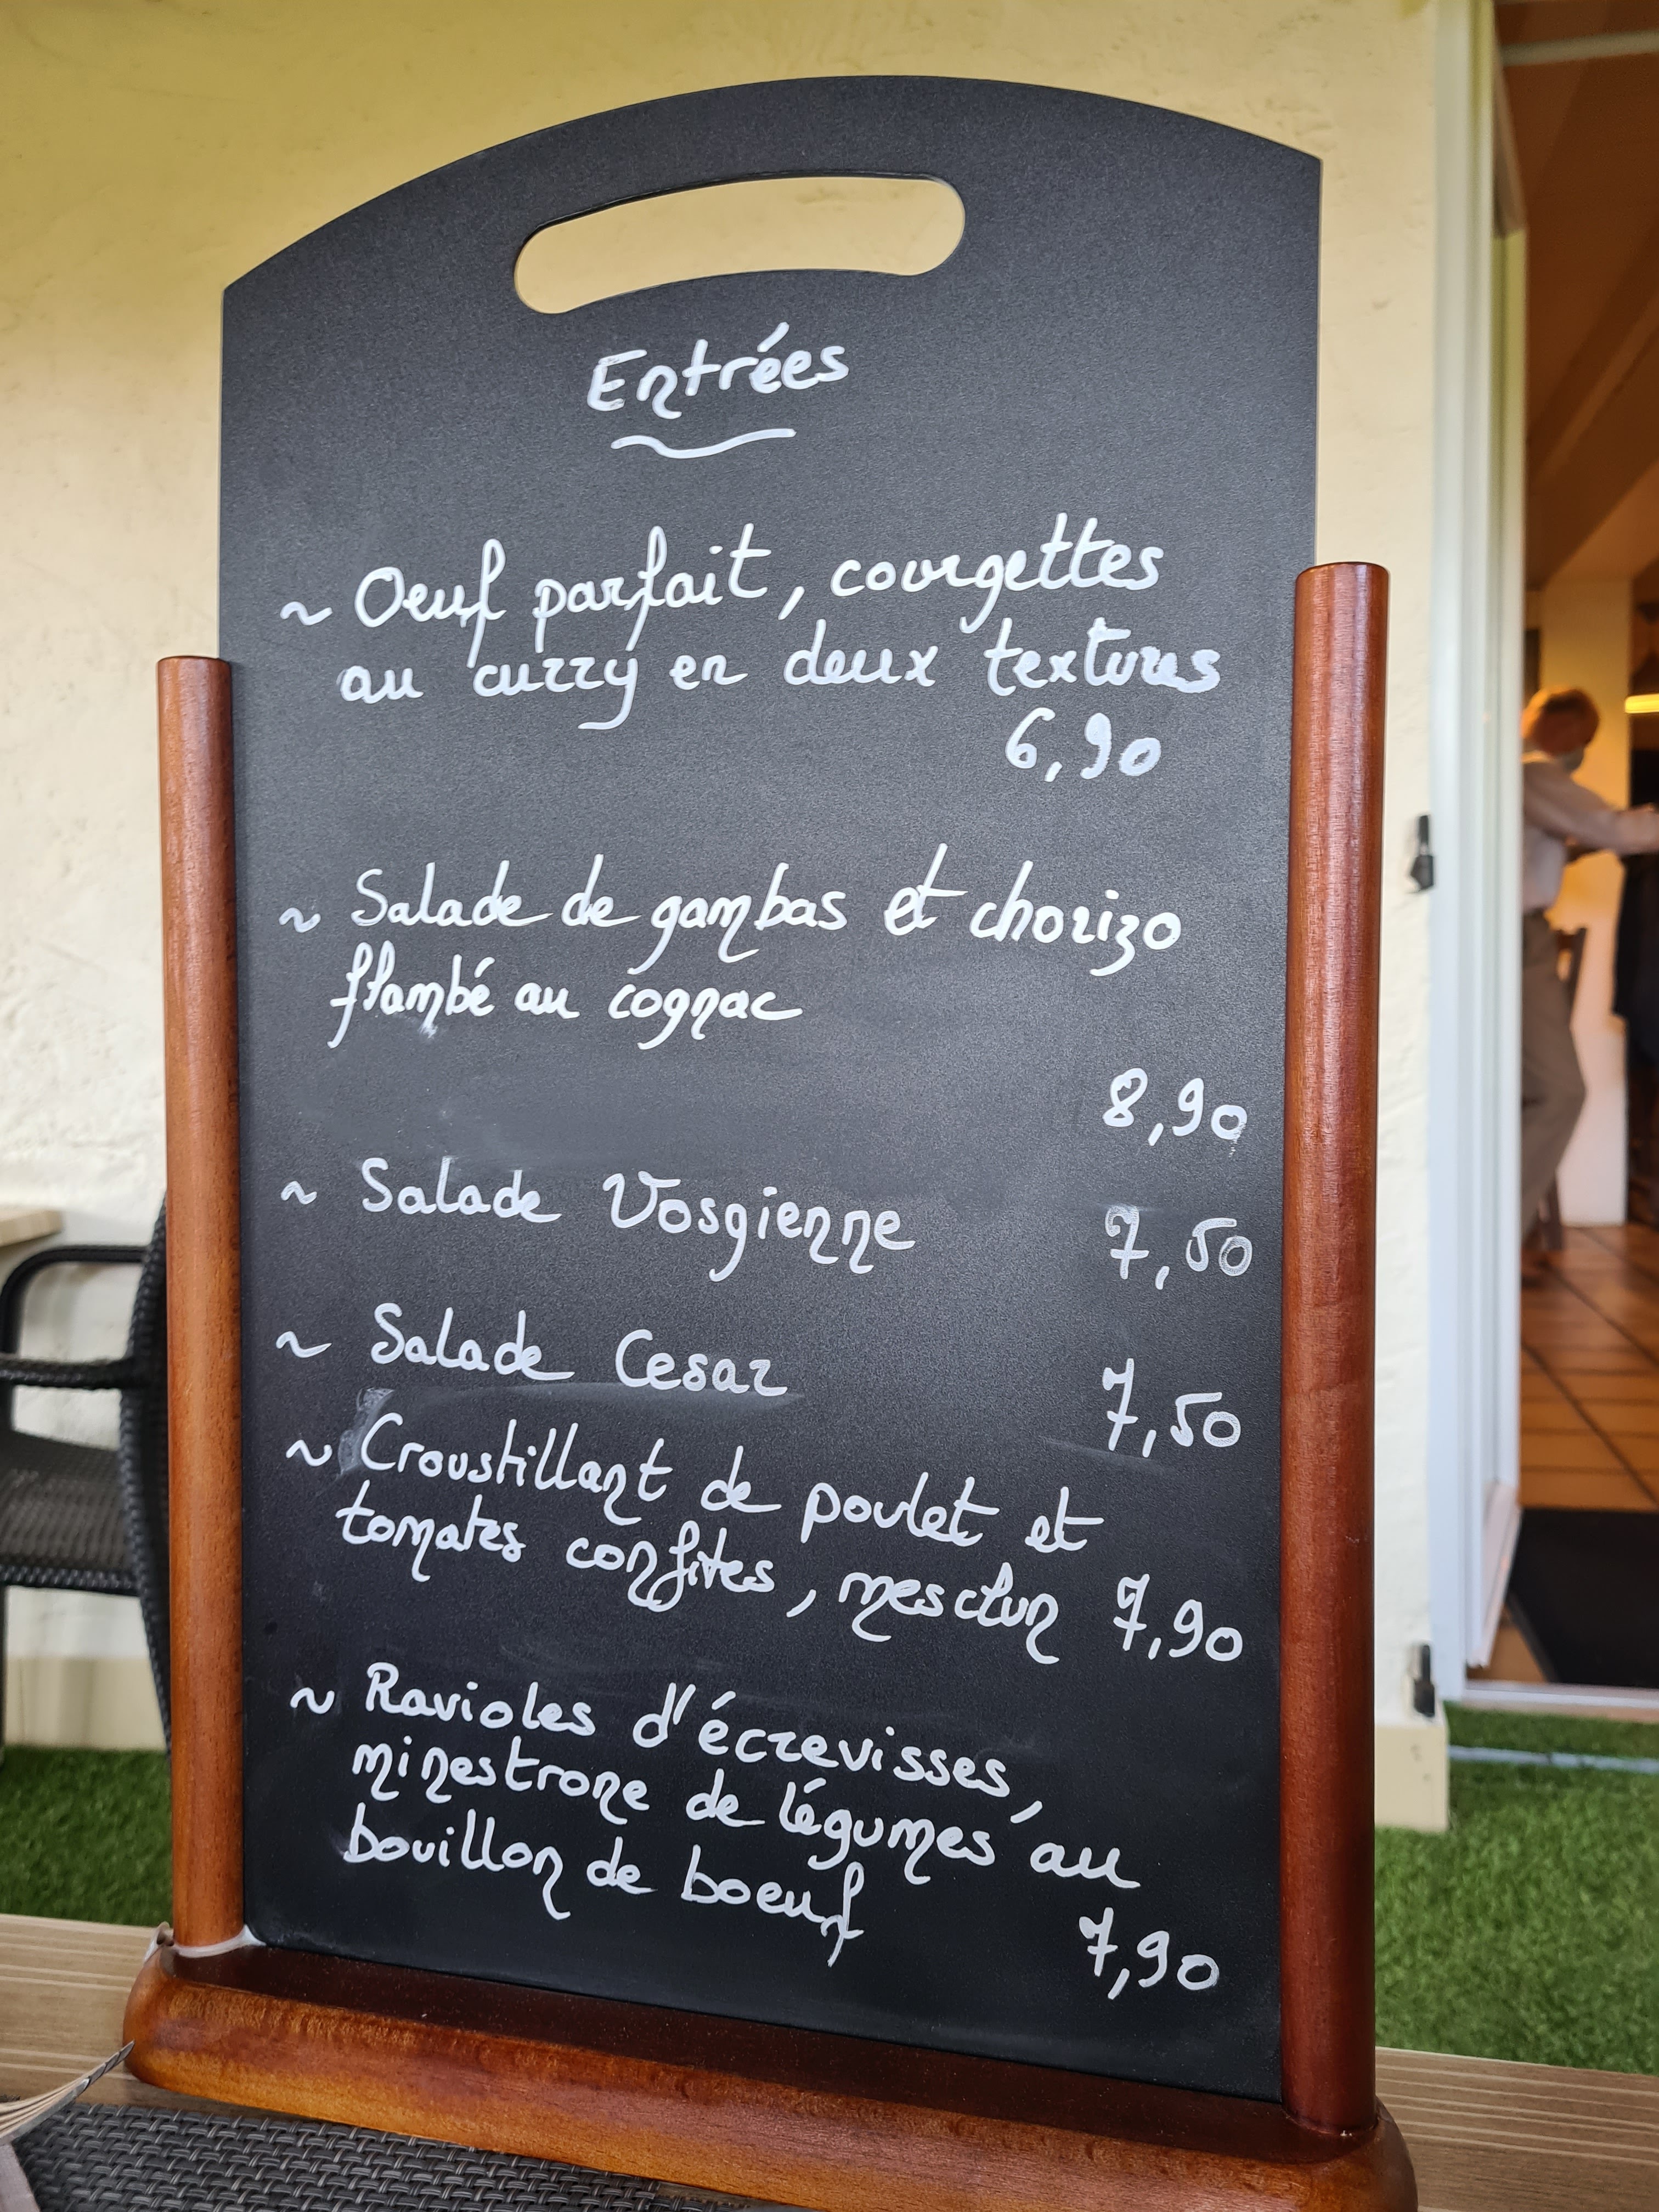 Entrées
~ Oeuf parfait, courgettes
au curry en deux textures
6,90
~ Salade de gambas et chorizo
flambé au cognac
8,90
~ Salade Vosgienne 7,50
~ Salade Cesar 7,50
~ Croustillant de poulet et
tomates confites, mesclun 7,90
~ Ravioles d'écrevisses,
minestrone de légumes au
bouillon de boeuf
7,90